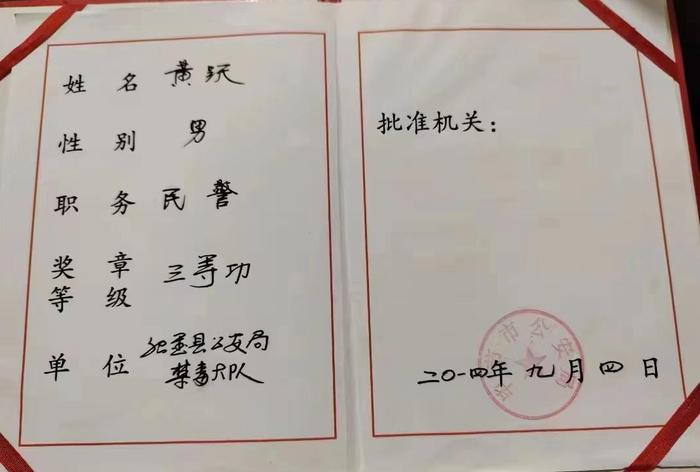 姓名 黄跃
性别 男
职务 民警
奖章等级 三等功
单位 织金县公安局
禁毒大队
批准机关：
毕节市公安局
二〇一四年九月四日